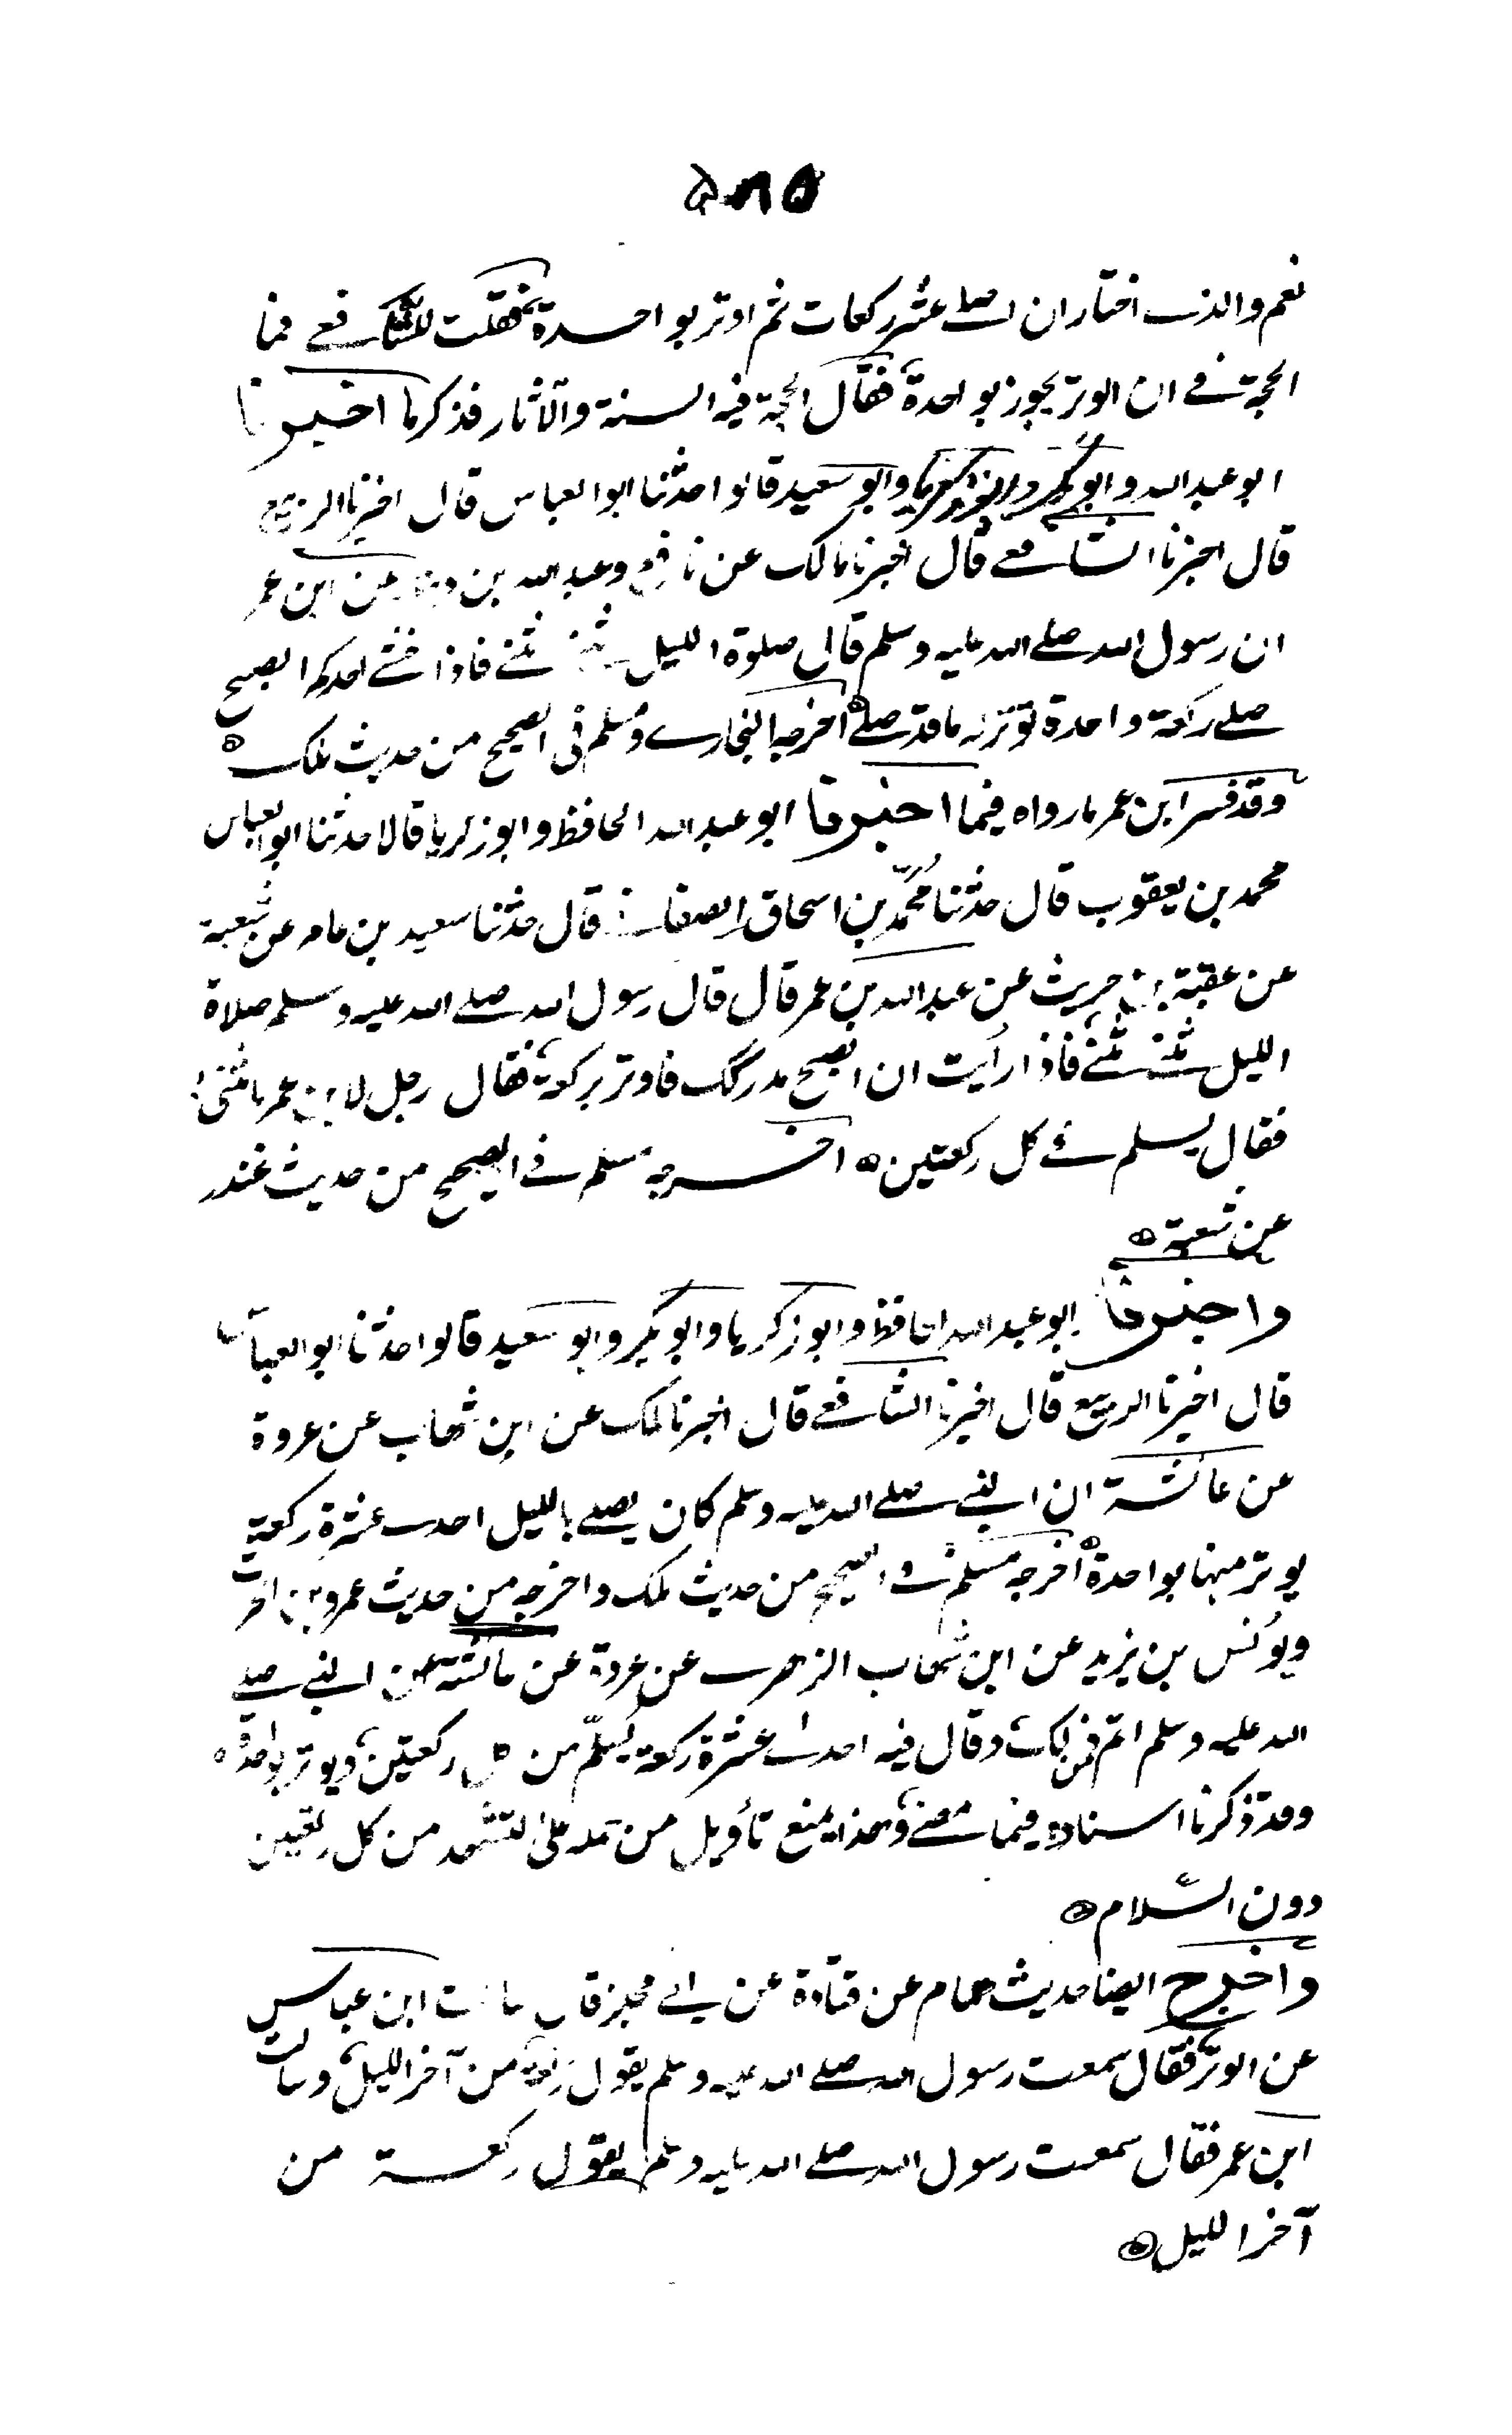 نعم والذی اختار ان یصلی عشر رکعات ثم اوتر بواحدة فقلت للشافعی فما
الحجة فی ان الوتر یجوز بواحدة فقال الحجة فیه السنة والآثار فذکرها اخبرنا
ابو عبد الله وابو بکر وابو زکریا وابو سعید قالوا حدثنا ابو العباس قال اخبرنا الربیع
قال اخبرنا الشافعی قال اخبرنا مالک عن نافع وعبد الله بن دینار عن ابن عمر
ان رسول الله صلی الله علیه وسلم قال صلوة اللیل مثنی مثنی فاذا خشی احدکم الصبح
صلی رکعة واحدة توتر له ما قد صلی اخرجه البخاری ومسلم فی الصحیح من حدیث ملک ه
وقد فسر ابن عمر ما رواه فیما اخبرنا ابو عبد الله الحافظ وابو زکریا قالا حدثنا ابو العباس
محمد بن یعقوب قال حدثنا محمد بن اسحاق الصغانی قال حدثنا سعید بن عامر عن شعبة
عن عقبة بن حریث عن عبد الله بن عمر قال قال رسول الله صلی الله علیه وسلم صلاة
اللیل مثنی مثنی فاذا رأیت ان الصبح مدرکک فاوتر برکعة فقال رجل لابن عمر ما مثنی
فقال یسلم فی کل رکعتین ه اخرجه مسلم فی الصحیح من حدیث غندر
عن شعبة ه
واخبرنا ابو عبد الله الحافظ وابو زکریا وابو بکر وابو سعید قالوا حدثنا ابو العباس
قال اخبرنا الربیع قال اخبرنا الشافعی قال اخبرنا ملک عن ابن شهاب عن عروة
عن عائشة ان النبی صلی الله علیه وسلم کان یصلی باللیل احدی عشرة رکعة
یوتر منها بواحدة اخرجه مسلم فی الصحیح من حدیث ملک واخرجه من حدیث عمرو بن الحرث
ویونس بن یزید عن ابن شهاب الزهری عن عروة عن عائشة عن النبی صلی
الله علیه وسلم اتم من ذلک وقال فیه احدی عشرة رکعة یسلم من کل رکعتین ویوتر بواحدة ه
وقد ذکرنا اسناده فیما مضی وهذا یمنع تأویل من حمله علی التشهد من کل رکعتین
دون السلام ه
واخرج ایضا حدیث همام عن قتادة عن ابی مجلز قال سالت ابن عباس
عن الوتر فقال سمعت رسول الله صلی الله علیه وسلم یقول رکعة من آخر اللیل وسالت
ابن عمر فقال سمعت رسول الله صلی الله علیه وسلم یقول رکعة من
آخر اللیل ه